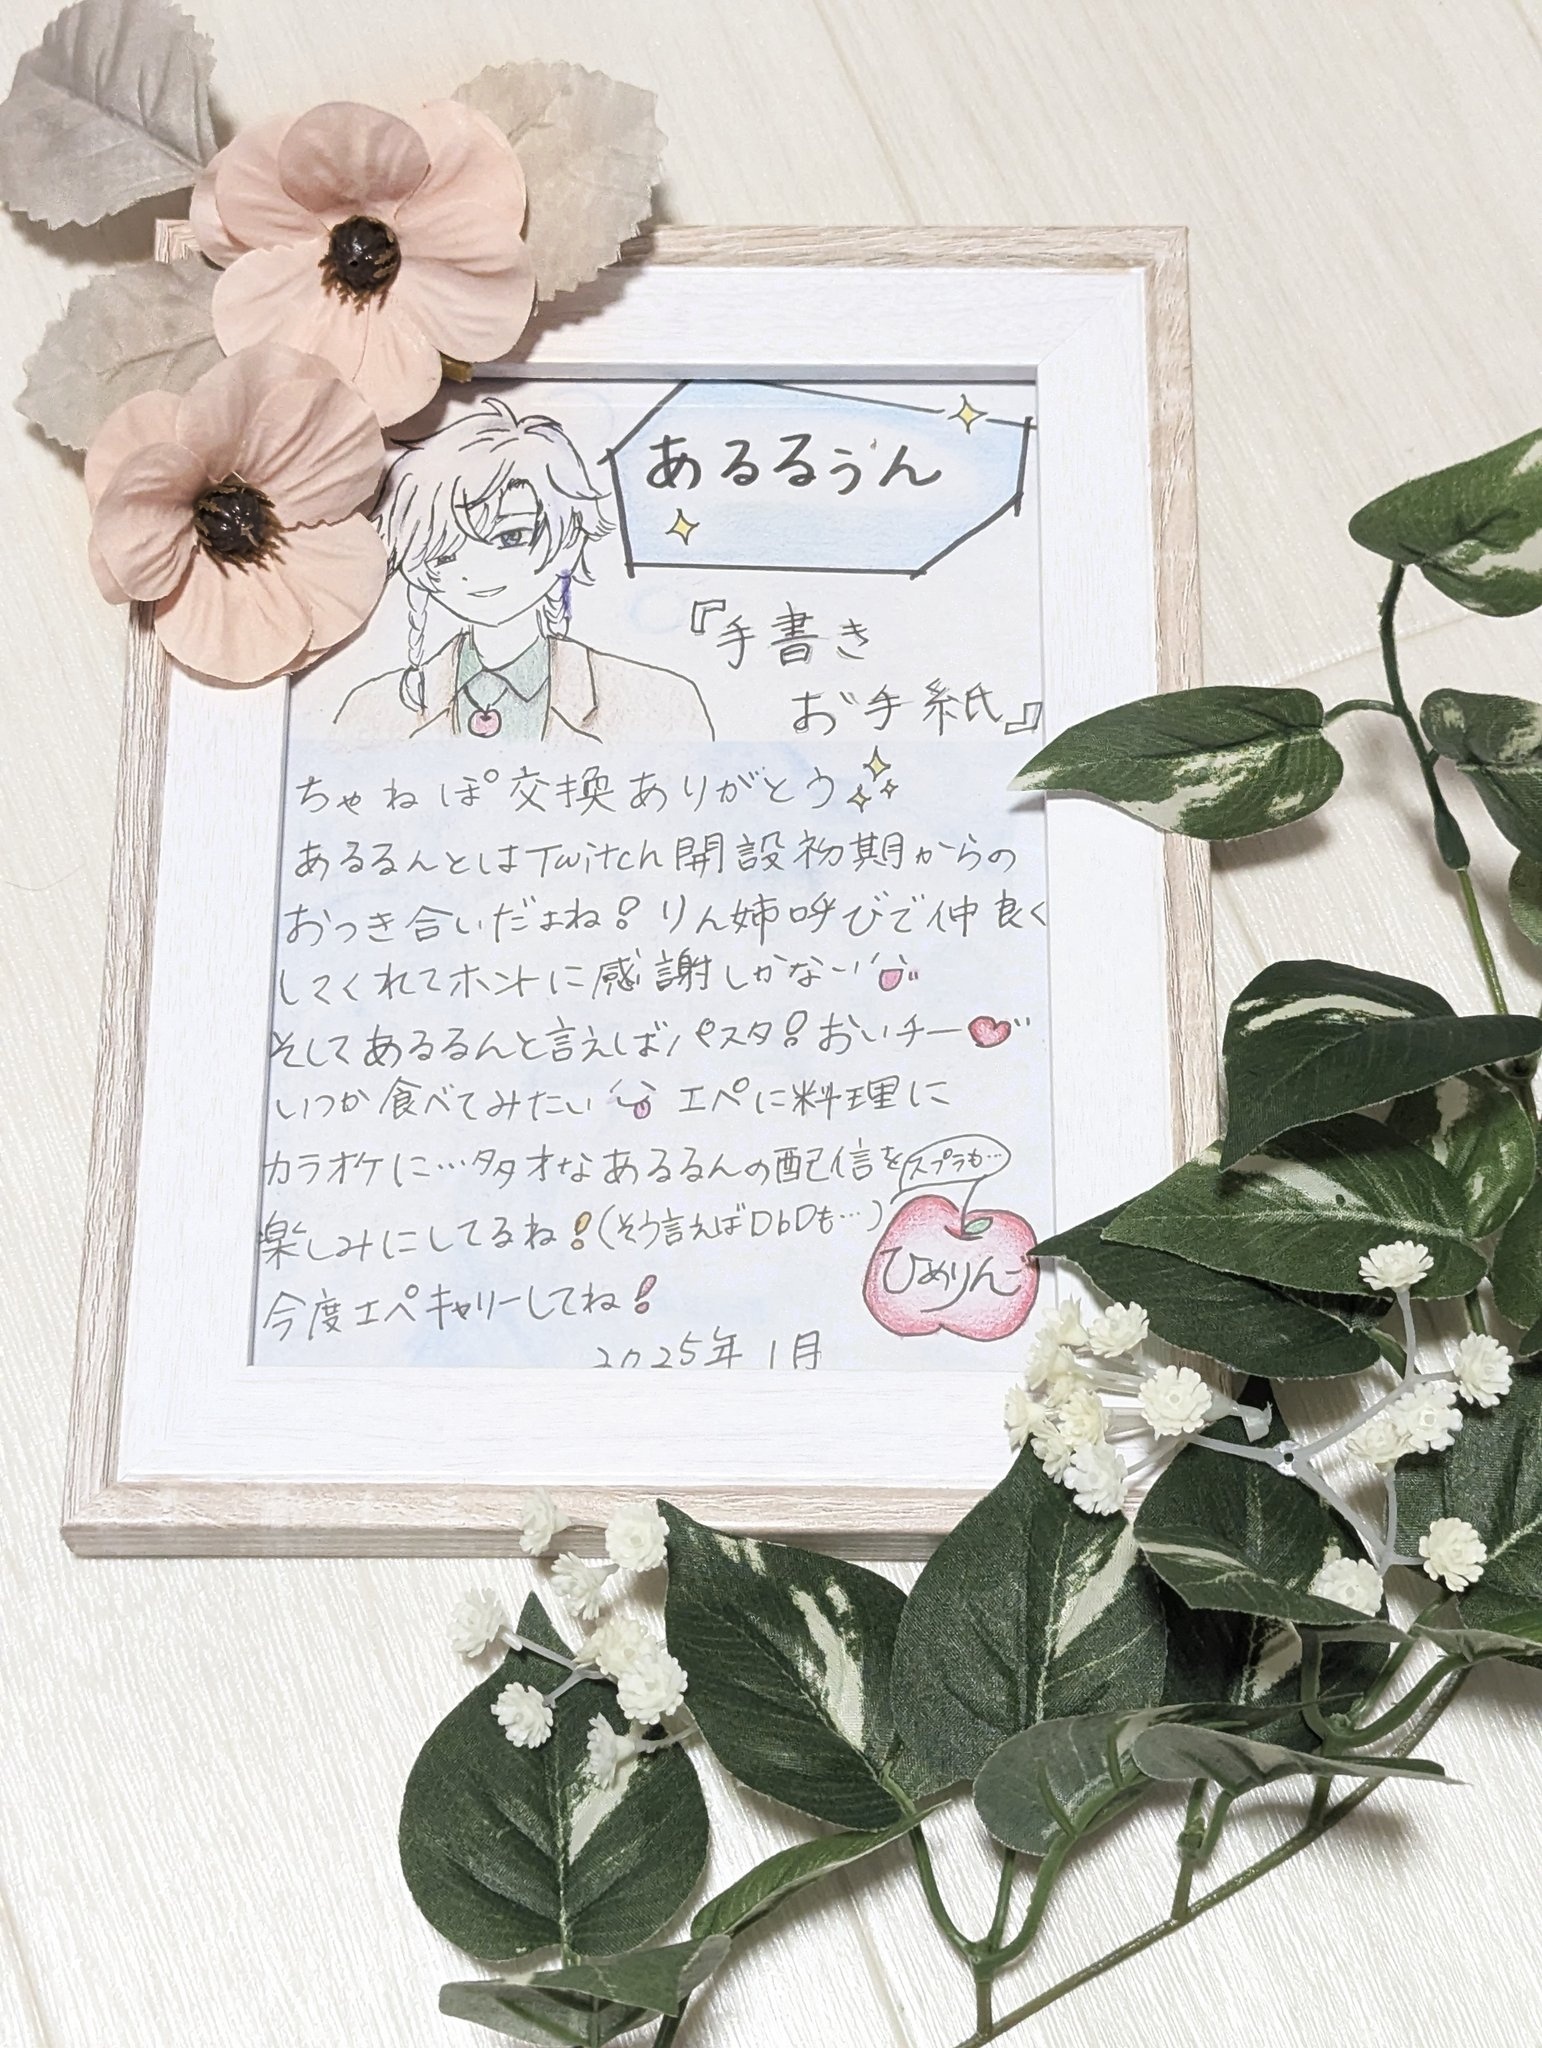 あるるぅん
『手書き
お手紙』
ちゃねぽ交換ありがとう
あるるんとはTwitch開設初期からの
おつき合いだよね!りん姉呼びで仲良く
してくれてホントに感謝しかない
そしてあるるんと言えばパスタ!おいチー
いつか食べてみたい エペに料理に
カラオケに…多才なあるるんの配信を
スプラも…
楽しみにしてるね!(そう言えばDbDも…)
ひめりんご
今度エペキャリーしてね!
2025年1月